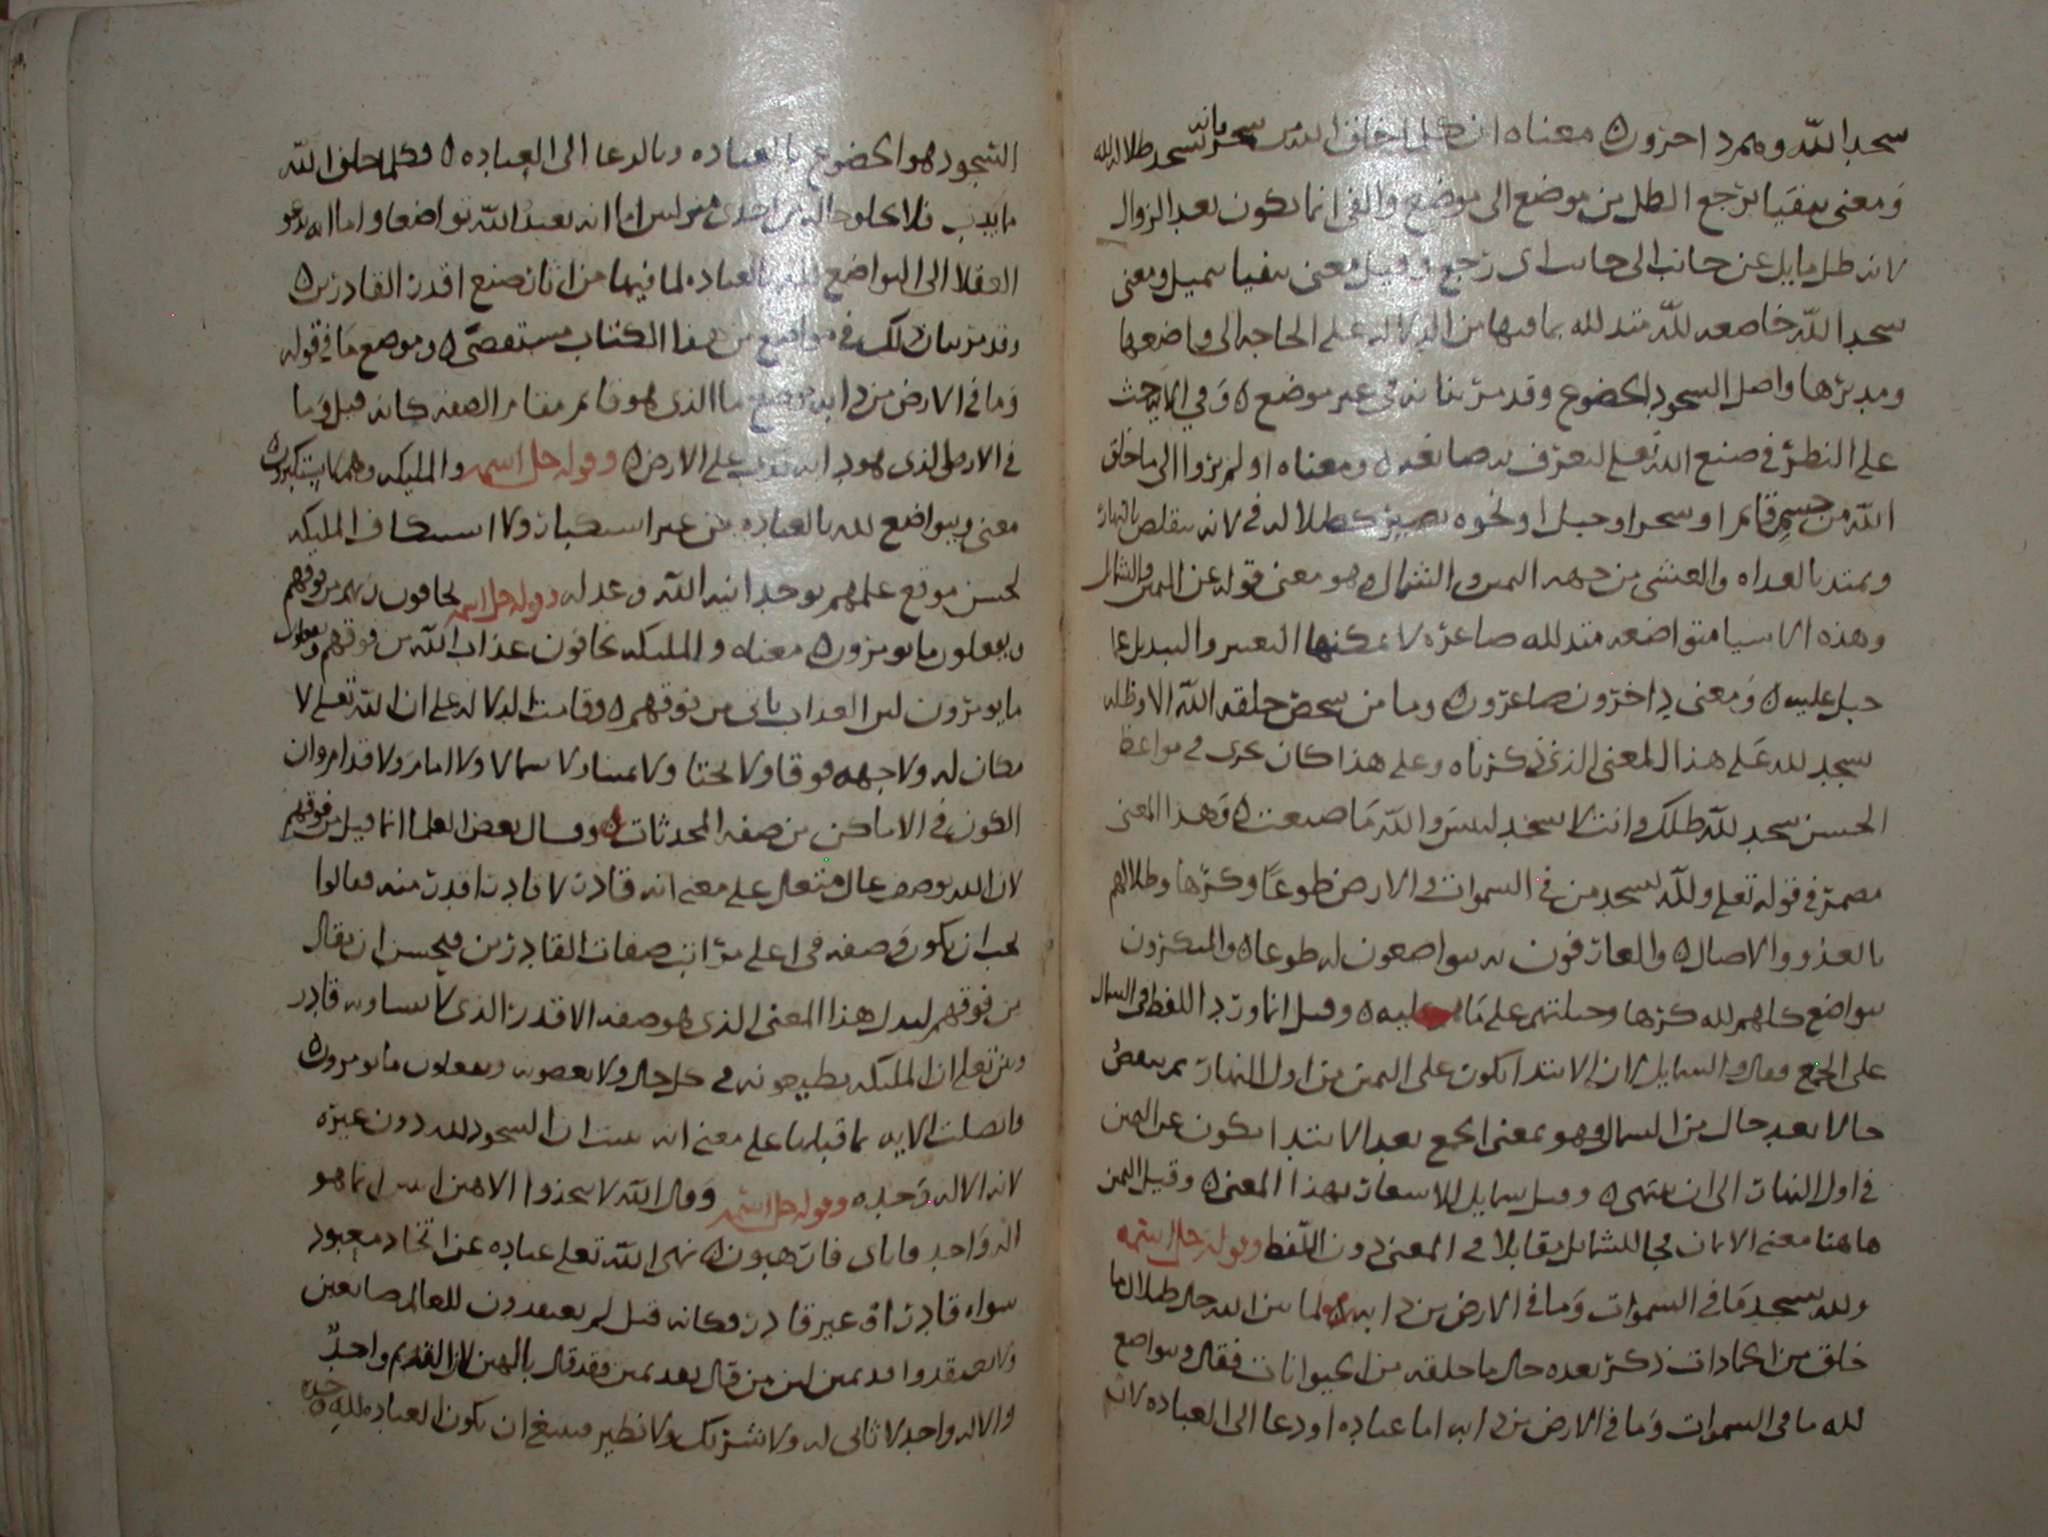 سجدا لله وهم داخرون معناه ان كل ما خلق الله من شجر وانه يسجد ظلاله لله
ومعنى يتفيا يرجع الظل من موضع الى موضع والفي انما يكون بعد الزوال
لانه ظل مايل عن جانب الى جانب اى رجع وقيل معنى يتفيا يميل ومعنى
سجدا لله خاضعه لله متذلله بما فيها من الدلاله على الحاجه الى واضعها
ومدبرها واصل السجود الخضوع وقد مر بيانه فى غير موضع وفي الايه حث
على النظر في صنع الله تعلى ليعرف به صانعه ومعناه اولم يروا الى ما خلق
الله من جسم قايم او شجر او جبل او نحوه يصير كظلاله في لانه يتقلص بالنهار
ويمتد بالغداه والعشي من جهه اليمين والشمال وهو معنى قوله عن اليمين والشمال
وهذه الاشيا متواضعه متذلله صاغره لا يمكنها التغيير والتبديل عما
جبل عليه ومعنى داخرون صاغرون وما من شخص خلقه الله الا وظله
يسجد لله على هذا المعنى الذي ذكرناه وعلى هذا كان يجرى في مواعظ
الحسن يسجد لله ظلك وانت لا تسجد لبيس والله ما صنعت وهذا المعنى
مضمر في قوله تعلى ولله يسجد من في السموات والارض طوعا وكرها وظلالهم
بالغدو والاصال والعارفون به يتواضعون له طوعا والمتكبرون
يتواضع كلهم لله كرها وجبلتهم على ما هو عليه وقيل انما ورد اللفظ في الشمال
على الجمع فقال والشمايل لان الابتدا يكون على اليمين من اول النهار ثم ينقص
حالا بعد حال من الشمال وهو بمعنى الجمع بعد الابتدا يكون عن اليمين
في اول النهار الى ان ينتهي وقيل شمايل للاتساع بهذا المعنى وقيل اليمين
هاهنا معنى الايمان فجا للشمايل مقابلا في المعنى دون اللفظ وقوله جل اسمه
ولله يسجد ما في السموات وما في الارض من دابه لما بين الله حال ظلال ما
خلق من الجمادات ذكر بعده حال ما خلقه من الحيوانات فقال ويتواضع
لله ما في السموات وما في الارض من دابه اما عباده او دعا الى العباده لان
السجود هو الخضوع بالعباده وبالدعا الى العباده فكلما خلق الله
ما يدب فلا يخلو حاله من احدى منزلتين اما انه يعبد الله تواضعا واما انه يدعو
العقلا الى التواضع لله بالعباده لما فيها من اثار صنع اقدر القادرين
وقد مر بيان ذلك في مواضع من هذا الكتاب مستقصى وموضع ما في قوله
وما في الارض من دابه موضع ما الذى هو قايم مقام الصفه كانه قيل وما
في الارض الذى هو دابه تدب على الارض وقوله جل اسمه والمليكه وهم لا يستكبرون
معنى ويتواضع لله بالعباده من غير استكبار ولا استنكاف المليكه
لحسن موقع علمهم بوحدانيه الله وعدله وقوله جل اسمه يخافون ربهم من فوقهم
ويفعلون ما يومرون معناه والمليكه يخافون عذاب الله من فوقهم ويفعلون
ما يومرون لان العذاب ياتى من فوقهم وقامت الدلاله على ان الله تعلى لا
مكان له ولا جهه فوقا ولا تحتا ولا يمينا ولا شمالا ولا اماما ولا قداما وان
الكون في الاماكن من صفه المحدثات وقال بعض العلما انما قيل من فوقهم
لان الله يوصف عال متعال على معنى انه قادر لا قادر اقدر منه فقالوا
يجب ان يكون في صفه في اعلى مراتب صفات القادرين فيحسن ان يقال
من فوقهم ليدل هذا المعنى الذى هو صفه الاقدر الذى لا يساويه قادر
وبين تعلى ان المليكه يطيعونه في كل حال ولا يعصونه ويفعلون ما يومرون
واتصلت الايه بما قبلها على معنى انه بينت ان السجود لله دون غيره
لانه الاله وحده وقوله جل اسمه وقال الله لا تتخذوا الاهين اثنين انما هو
اله واحد فاياى فارهبون نهى الله تعلى عباده عن اتخاذ معبود
سواه قادر او غير قادر فكانه قيل لم تعبدون للعالم صانعين
ولا تعتقدوا قديمين اثنين من قال بعد يمين فقد قال بالهين لان القديم واحد
والاله واحد لا ثانى له ولا شريك ولا نظير فينبغ ان يكون العباده لله وحده